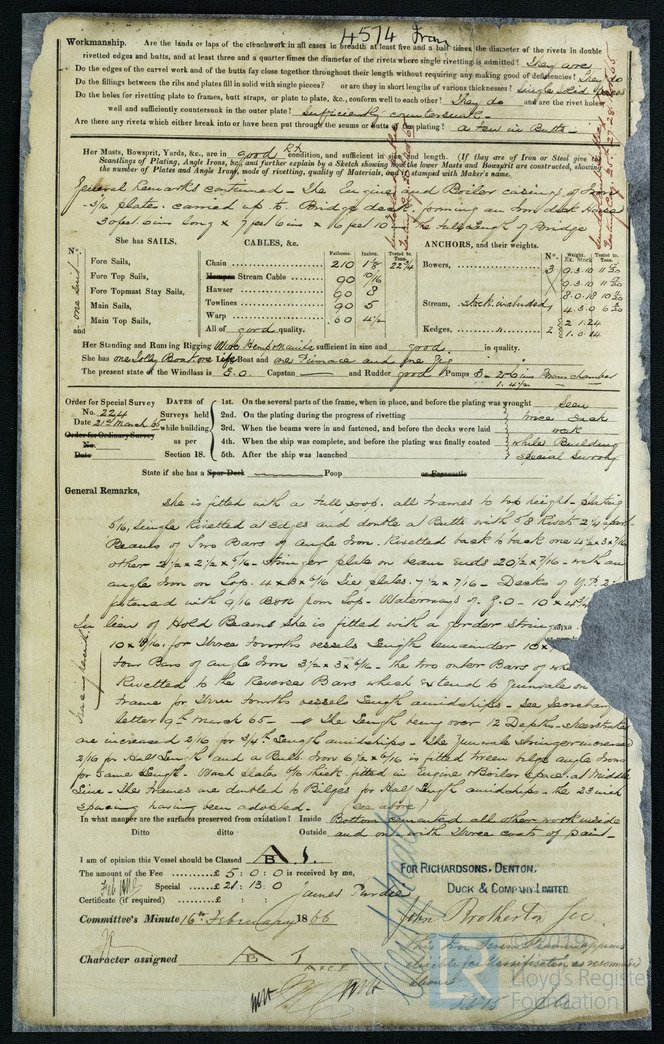 4574 Iron
Workmanship. Are the lands or laps of the clenchwork in all cases in breadth at least five and a half times the diameter of the rivets in double
rivetted edges and butts, and at least three and a quarter times the diameter of the rivets where single rivetting is admitted? They are
Do the edges of the carvel work and of the butts fay close together throughout their length without requiring any making good of deficiencies? They do
Do the fillings between the ribs and plates fill in solid with single pieces? or are they in short lengths of various thicknesses? Single Solid pieces
Do the holes for rivetting plate to frames, butt straps, or plate to plate, &c., conform well to each other? They do and are the rivet holes
well and sufficiently countersunk in the outer plate? Sufficiently countersunk
Are there any rivets which either break into or have been put through the seams or butts of the plating? a few in Butts
Her Masts, Bowsprit, Yards, &c., are in good condition, and sufficient in size and length. (If they are of Iron or Steel give the
Scantlings of Plating, Angle Irons, &c., and further explain by a Sketch showing how the lower Masts and Bowsprit are constructed, showing
the number of Plates and Angle Irons, mode of rivetting, quality of Materials, and if stamped with Maker's name.
General Remarks continued - The Engine and Boiler casings of Iron
5/16 plates. carried up to Bridge deck forming an Iron deck House
30 feet 6 ins long x 7 feet 6 ins x 6 feet 10 the full length of Bridge
She has SAILS. CABLES, &c. ANCHORS, and their weights.
Fathoms. Inches. Tested to Tons. Nos. Weight. Ex. Stock Tested to Tons.
N°.
one suit
Fore Sails, Chain 210 1 5/8 22 3/4 Bowers, 3 9.3.10
Fore Top Sails, Hempen Stream Cable 90 10/16 9.3.10
Fore Topmast Stay Sails, Hawser 90 8 8.0.18
Main Sails, Towlines 90 5 Stream, stock included 1 4.3.0
Main Top Sails, Warp 60 4 1/2 2 1.24
and All of good quality. Kedges, 2 1.0.14
Her Standing and Running Rigging Wire Hemp & Manila sufficient in size and good in quality.
She has one Jolly Boat one Life Boat and one Pinnace and one Gig
The present state of the Windlass is E.O. Capstan and Rudder good Pumps
Order for Special Survey
No. 224
Date 21st March 65
Order for Ordinary Survey
No.
Date
DATES of Surveys held while building as per Section 18.
1st. On the several parts of the frame, when in place, and before the plating was wrought Seen
2nd. On the plating during the progress of rivetting twice each
3rd. When the beams were in and fastened, and before the decks were laid week
4th. When the ship was complete, and before the plating was finally coated while Building
5th. After the ship was launched special Survey
State if she has a Spar Deck Poop or Forecastle
General Remarks,
She is fitted with a full poop. all frames to top height - plating
5/16, Single Rivetted at Edges and double at Butts with 5/8 Rivets 2 1/4 apart
Beams of Two Bars of angle Iron. Rivetted back to back one 4 1/2 x 3 x 7/16
other 2 1/2 x 2 1/2 x 5/16 - Stringer plate on beam ends 20 1/2 x 7/16 - with an
angle Iron on top. 4 x 3 x 6/16 Tie plates. 7 1/2 x 7/16 - Decks of Y.P.
fastened with 9/16 Bolt from top - Waterways of
In lieu of Hold Beams She is fitted with a Girder Stringer
for Three Fourths vessels length remainder
Four Bars of angle Iron 3 1/2 x 3 x 6/16 - the two outer Bars of
Rivetted to the Reverse Bars which extend to Gunwale on
frame for Three Fourths vessels length amidships - See Secretary
letter 9th March 65 - The length being over 12 Depths - Sheerstrake
are increased 2/16 for 3/4th length amidships - The Gunwale Stringer increased
2/16 for Half length and a Bulb Iron 6 1/2 x 6/16 is fitted tween bilge angle Irons
for same length - Wash Plates 6/16 thick. fitted in Engine & Boiler space. at Middle
line - The frames are doubled to Bilges for Half length amidships - the 23 inch
spacing having been adopted - (see above)
In what manner are the surfaces preserved from oxidation? Inside Bottom cemented all other work inside
Ditto ditto Outside and out with Three coats of paint
I am of opinion this Vessel should be Classed A B 1.
The amount of the Fee £ 5 : 0 : 0 is received by me,
Special £ 21 : 13 : 0
Certificate (if required) £ : :
James Purdie
FOR RICHARDSONS, DENTON,
DUCK & COMPANY LIMITED
John Brotherton Sec
Committee's Minute 16th February 1866
Character assigned A B 1
This Iron Screw Steamer appears
eligible for Classification as recommended
above
© 2019
LR
Lloyd's Register
Foundation